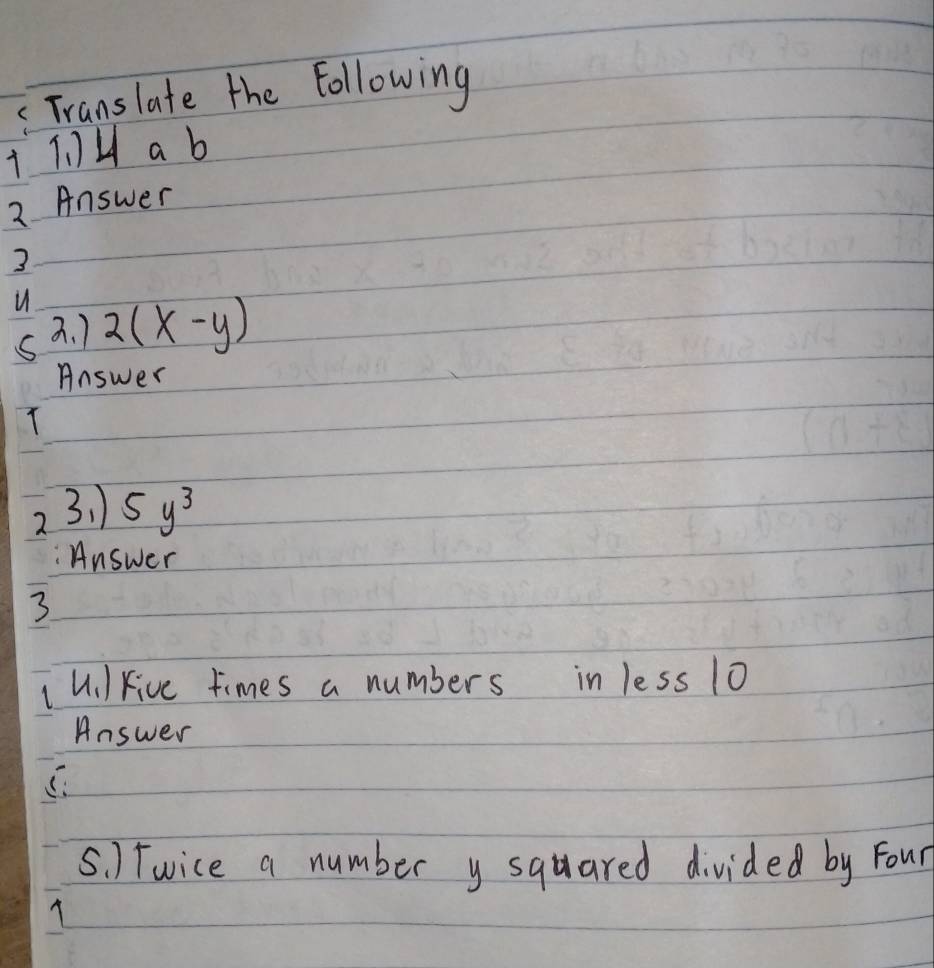 Translate the Following
1.) 4 a b
Answer
2.) 2(x-y)
Answer
3.) 5 y³
Answer
4.) Five times a numbers in less 10
Answer
5.) Twice a number y squared divided by Four